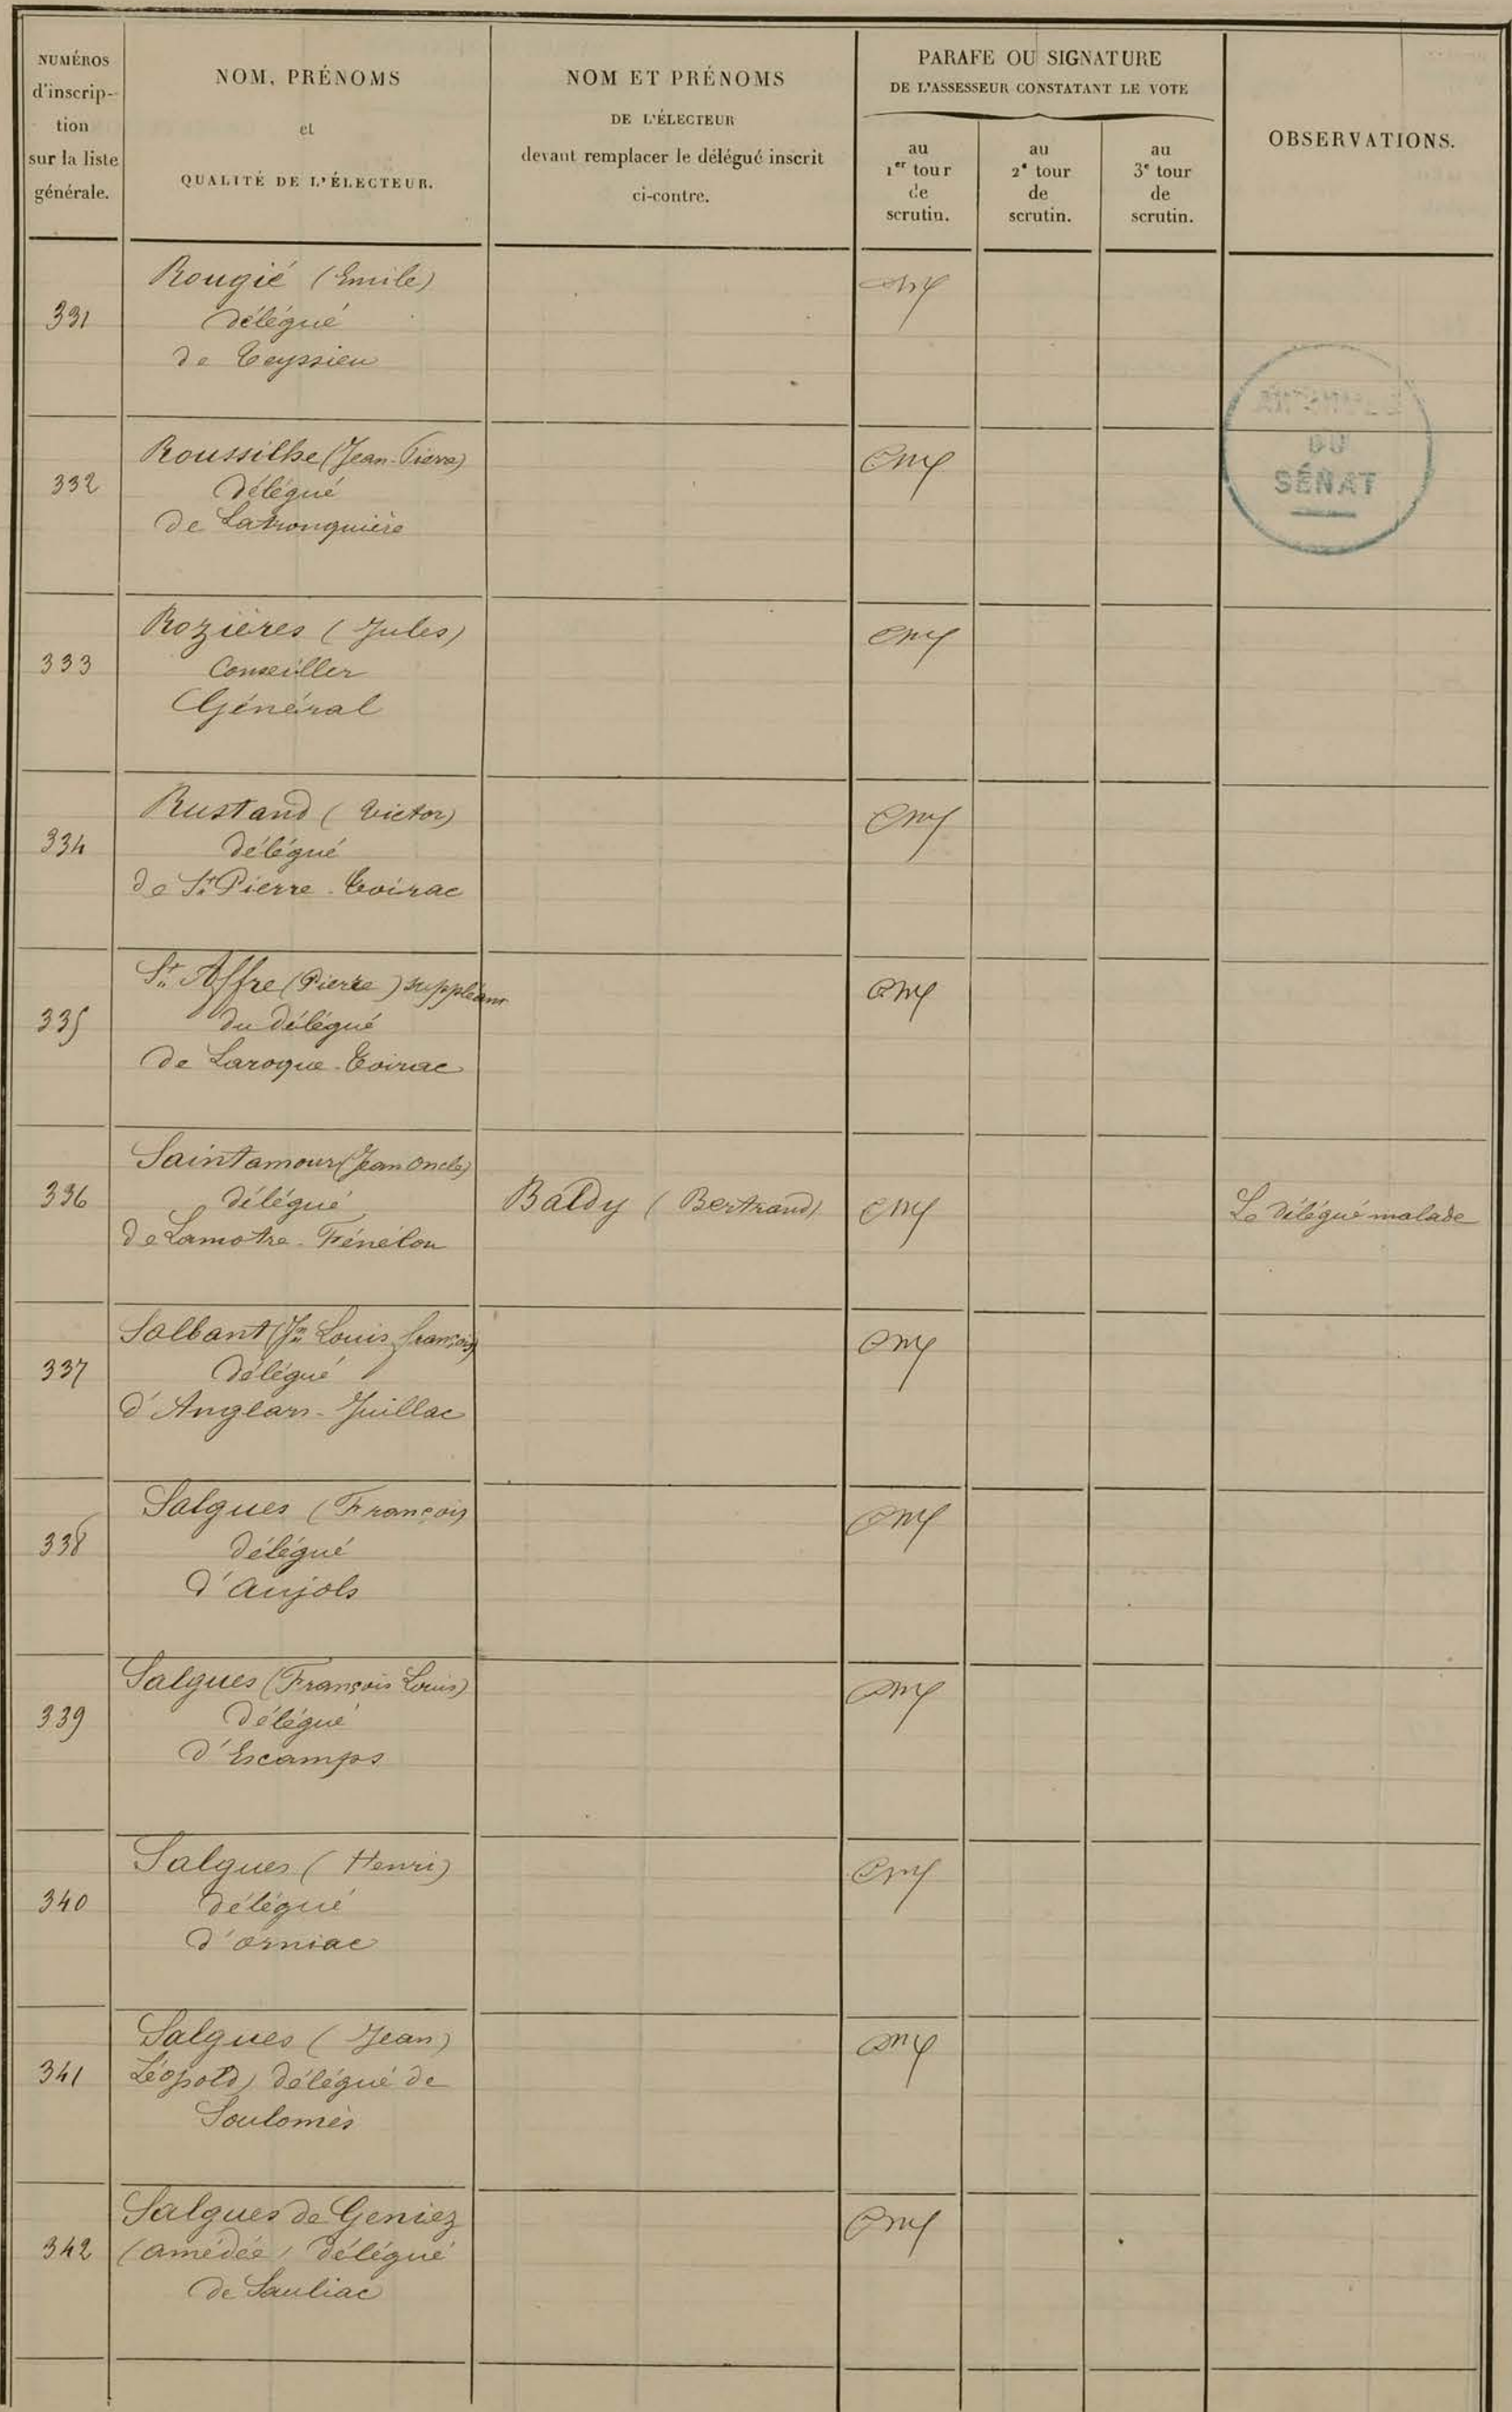 NUMÉROS
d'inscrip-
tion
sur la liste
générale.
NOM, PRÉNOMS
et
QUALITÉ DE L'ÉLECTEUR.
NOM ET PRÉNOMS
DE L'ÉLECTEUR
devant remplacer le délégué inscrit
ci-contre.
PARAFE OU SIGNATURE
DE L'ASSESSEUR CONSTATANT LE VOTE
au
1er tour
de
scrutin.
au
2e tour
de
scrutin.
au
3e tour
de
scrutin.
OBSERVATIONS.
331
Rougié (Emile)
délégué
de Teyssieu
DU
SÉNAT
332
Roussilhe (Jean-Pierre)
délégué
de Latronquière
333
Rozières (Jules)
Conseiller
Général
334
Rustand (Victor)
délégué
de St Pierre-Toirac
335
St Affre (Pierre) suppléant
du délégué
de Laroque-Toirac
336
Saintamour (Jean Oncle)
délégué
de Lamothe-Fénélon
Baldy (Bertrand)
Le délégué malade
337
Salbant (Jn Louis françois)
délégué
d'Anglars-Juillac
338
Salgues (François)
délégué
d'Aujols
339
Salgues (François Louis)
délégué
d'Escamps
340
Salgues (Henri)
délégué
d'orniac
341
Salgues (Jean)
Léopold) délégué de
Soulomès
342
Salgues de Geniez
(amédée) délégué
de Sauliac